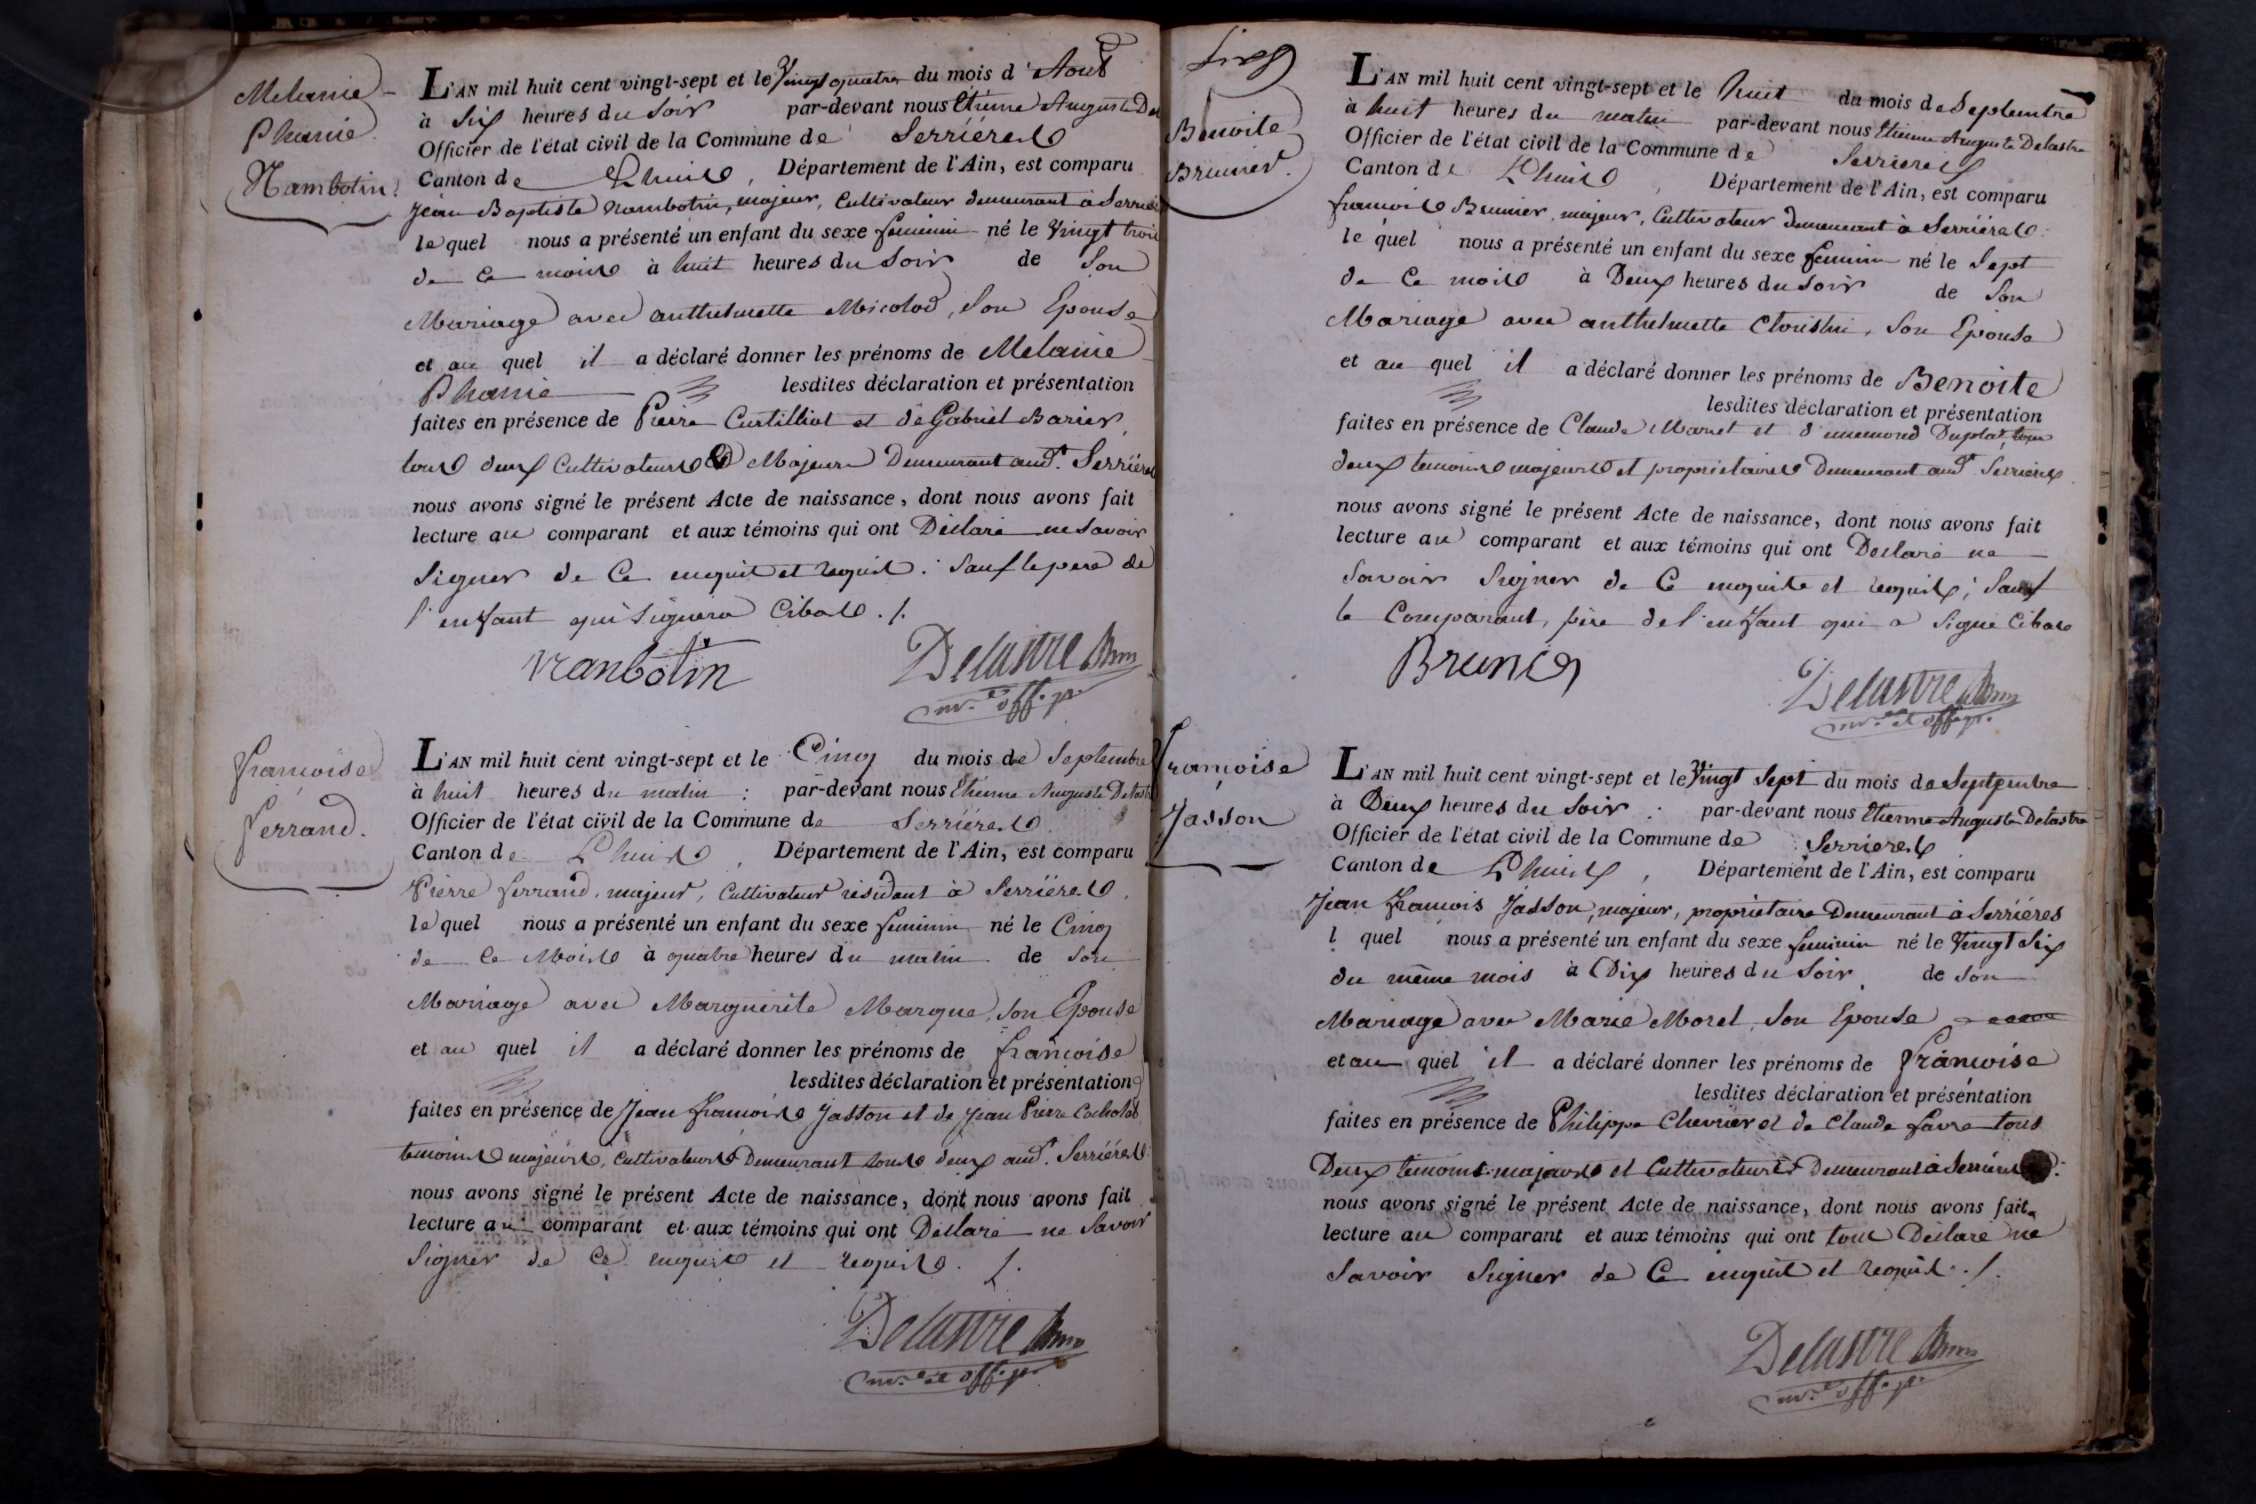 Melanie
Phanie
Nambotin
L'AN mil huit cent vingt-sept et le Vingt quatre du mois d'Aout
à Six heures du Soir par-devant nous Etienne Auguste De
Officier de l'état civil de la Commune de Serriéres
Canton de Lhuis, Département de l'Ain, est comparu
Jean Baptiste Nambotin, majeur, Cultivateur demeurant à Serrié
lequel nous a présenté un enfant du sexe feminin né le Vingt trois
de ce mois à huit heures du Soir de Son
Mariage avec anthelmette Micolod, Son Epouse
et au quel il a déclaré donner les prénoms de Melanie
Phanie lesdites déclaration et présentation
faites en présence de Pierre Curtilliat et de Gabriel Barier,
tous deux Cultivateurs Majeurs Demeurant aud.t Serriéres
nous avons signé le présent Acte de naissance, dont nous avons fait
lecture au comparant et aux témoins qui ont Déclaré ne Savoir
Signer de Ce enquis et requis. Sauf le pere de
l'enfant qui Signera Cibas ./.
Nanbotin Delastre
off. p.
françoise
ferrand.
L'AN mil huit cent vingt-sept et le Cinq du mois de Septembre
à huit heures du matin : par-devant nous Etienne Auguste Delast
Officier de l'état civil de la Commune de Serriéres
Canton de Lhuis, Département de l'Ain, est comparu
Pierre ferrand, majeur, Cultivateur résidant à Serriéres.
lequel nous a présenté un enfant du sexe feminin né le Cinq
de Ce Mois à quatre heures du matin de Son
Mariage avec Marguerite Marque, Son Epouse
et au quel il a déclaré donner les prénoms de françoise
lesdites déclaration et présentation
faites en présence de Jean françois Jasson et de Jean Pierre
temoins majeurs, Cultivateurs Demeurant tous deux aud.t Serriéres
nous avons signé le présent Acte de naissance, dont nous avons fait
lecture au comparant et aux témoins qui ont Déclaré ne Savoir
Signer de Ce enquis et requis. /.
Delastre
et off. p.
Benoite
Brunier.
L'AN mil huit cent vingt-sept et le huit du mois de Septembre
à huit heures du matin par-devant nous Etienne Auguste Delastre
Officier de l'état civil de la Commune de Serrieres
Canton de Lhuis, Département de l'Ain, est comparu
françois Brunier, majeur, Cultivateur demeurant à Serriéres.
le quel nous a présenté un enfant du sexe feminin né le Sept
de Ce mois à Deux heures du Soir de Son
Mariage avec anthelmette, Son Epouse
et au quel il a déclaré donner les prénoms de Benoite
lesdites déclaration et présentation
faites en présence de Claude Maret et d'ennemond Duplat, tous
deux temoins majeurs et propriétaires Demeurant aud.t Serrieres
nous avons signé le présent Acte de naissance, dont nous avons fait
lecture au comparant et aux témoins qui ont Declaré ne
Savoir Signer de Ce enquis et requis; Sauf
le Comparant, père de l'enfant qui a Signé Cibas
Brunier Delastre
et off. p.
françoise
Jasson
L'AN mil huit cent vingt-sept et le Vingt Sept du mois de Septembre
à Deux heures du Soir : par-devant nous Etienne Auguste Delastre
Officier de l'état civil de la Commune de Serrieres
Canton de Lhuis, Département de l'Ain, est comparu
Jean françois Jasson, majeur, propriétaire Demeurant à Serriéres
l quel nous a présenté un enfant du sexe feminin né le Vingt Six
du même mois à Dix heures du Soir de Son
Mariage avec Marie Morel, Son Epouse
et au quel il a déclaré donner les prénoms de françoise
lesdites déclaration et présentation
faites en présence de Philippe Chevrier et de Claude favre tous
Deux temoins majeurs et Cultivateurs Demeurant à Serriéres
nous avons signé le présent Acte de naissance, dont nous avons fait
lecture au comparant et aux témoins qui ont tous Déclaré ne
Savoir Signer de Ce enquis et requis. /.
Delastre
off. p.